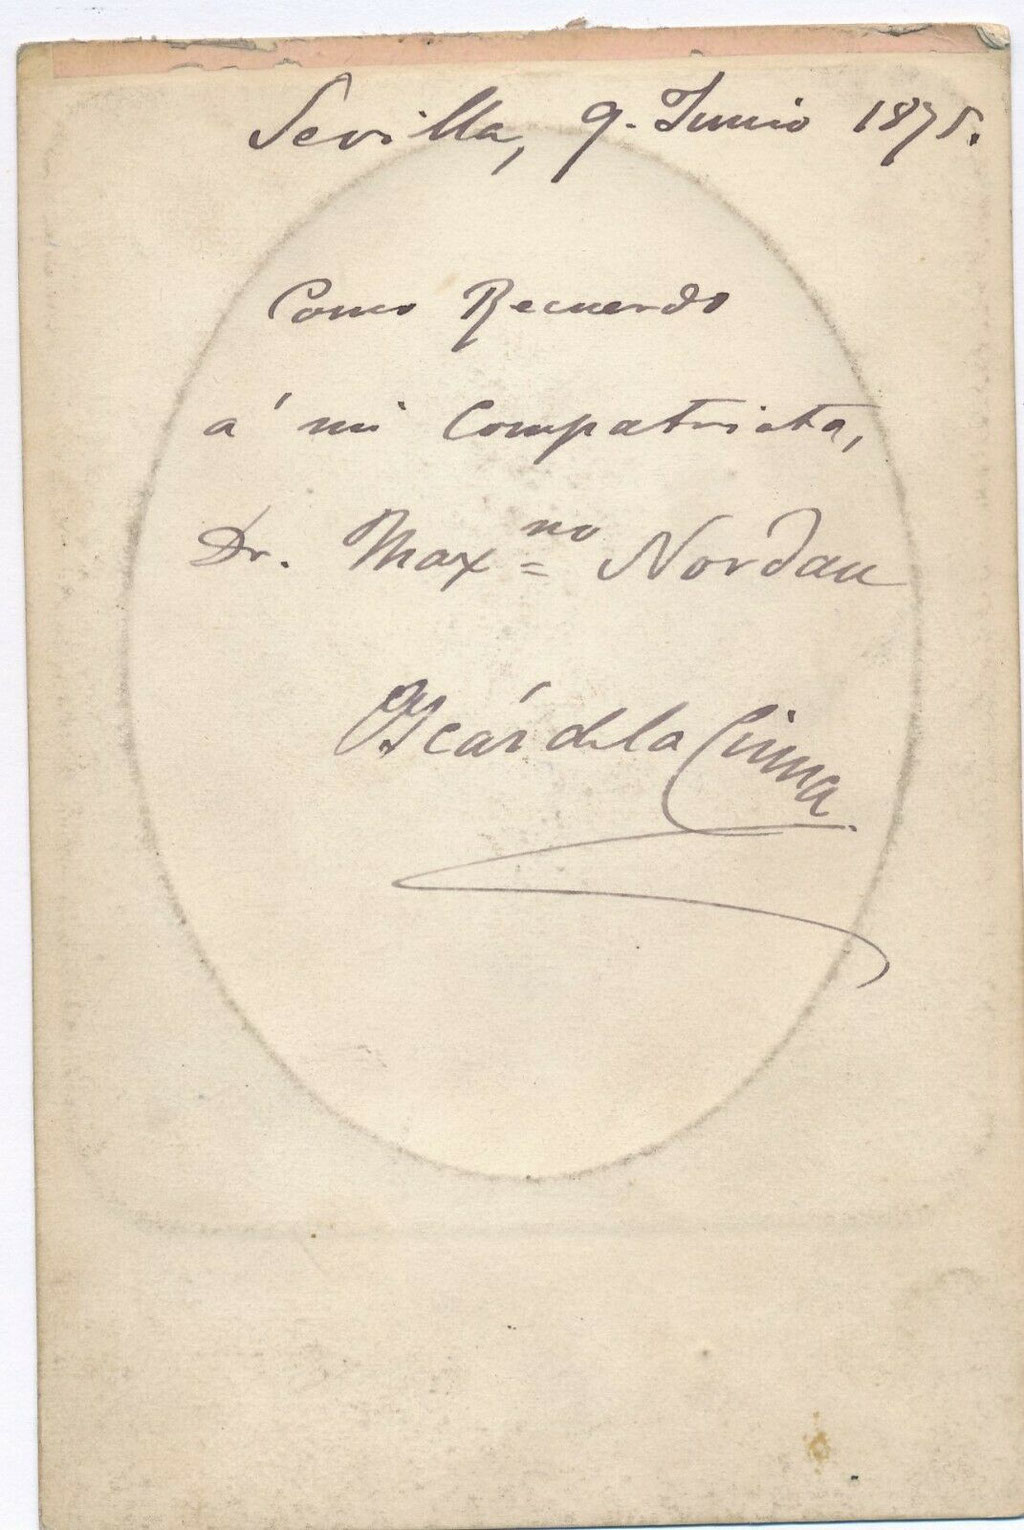 Sevilla, 9. Junio 1875.
Como Recuerdo
á mi Compatriota,
Dr. Max<sup>no</sup> Nordau
Oscár de la Cinna